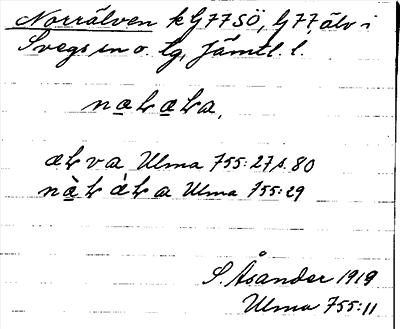 Norrälven k G77SÖ, G77, älv i
Svegs sn o. tg, Jämtl. l.
Ulma 755:27 s. 80
Ulma 755:29
S. Åsander 1919
Ulma 755:11